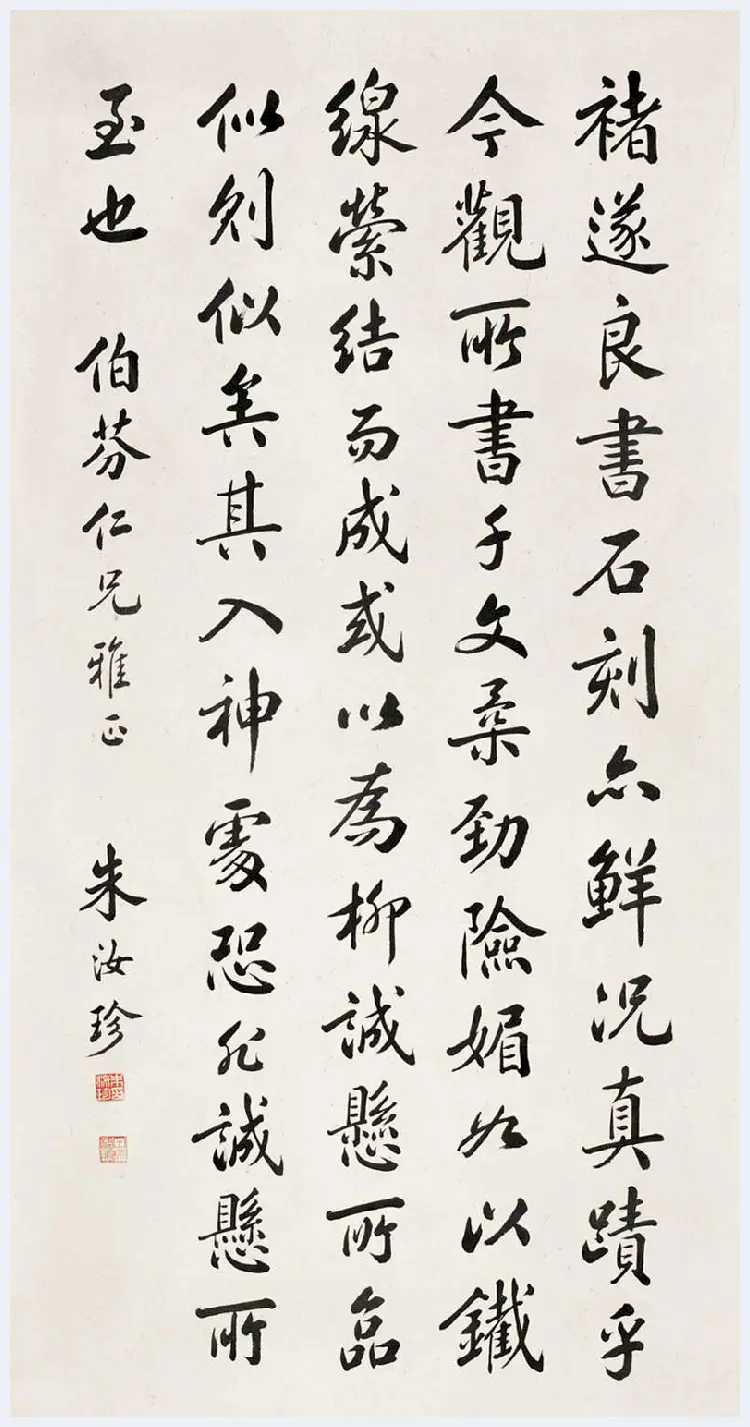 褚遂良書石刻亦鮮況真蹟乎
今觀所書千文柔勁險媚如以鐵
線縈結而成或以為柳誠懸所臨
似則似矣其入神處恐非誠懸所
至也 伯芬仁兄雅正 朱汝珍